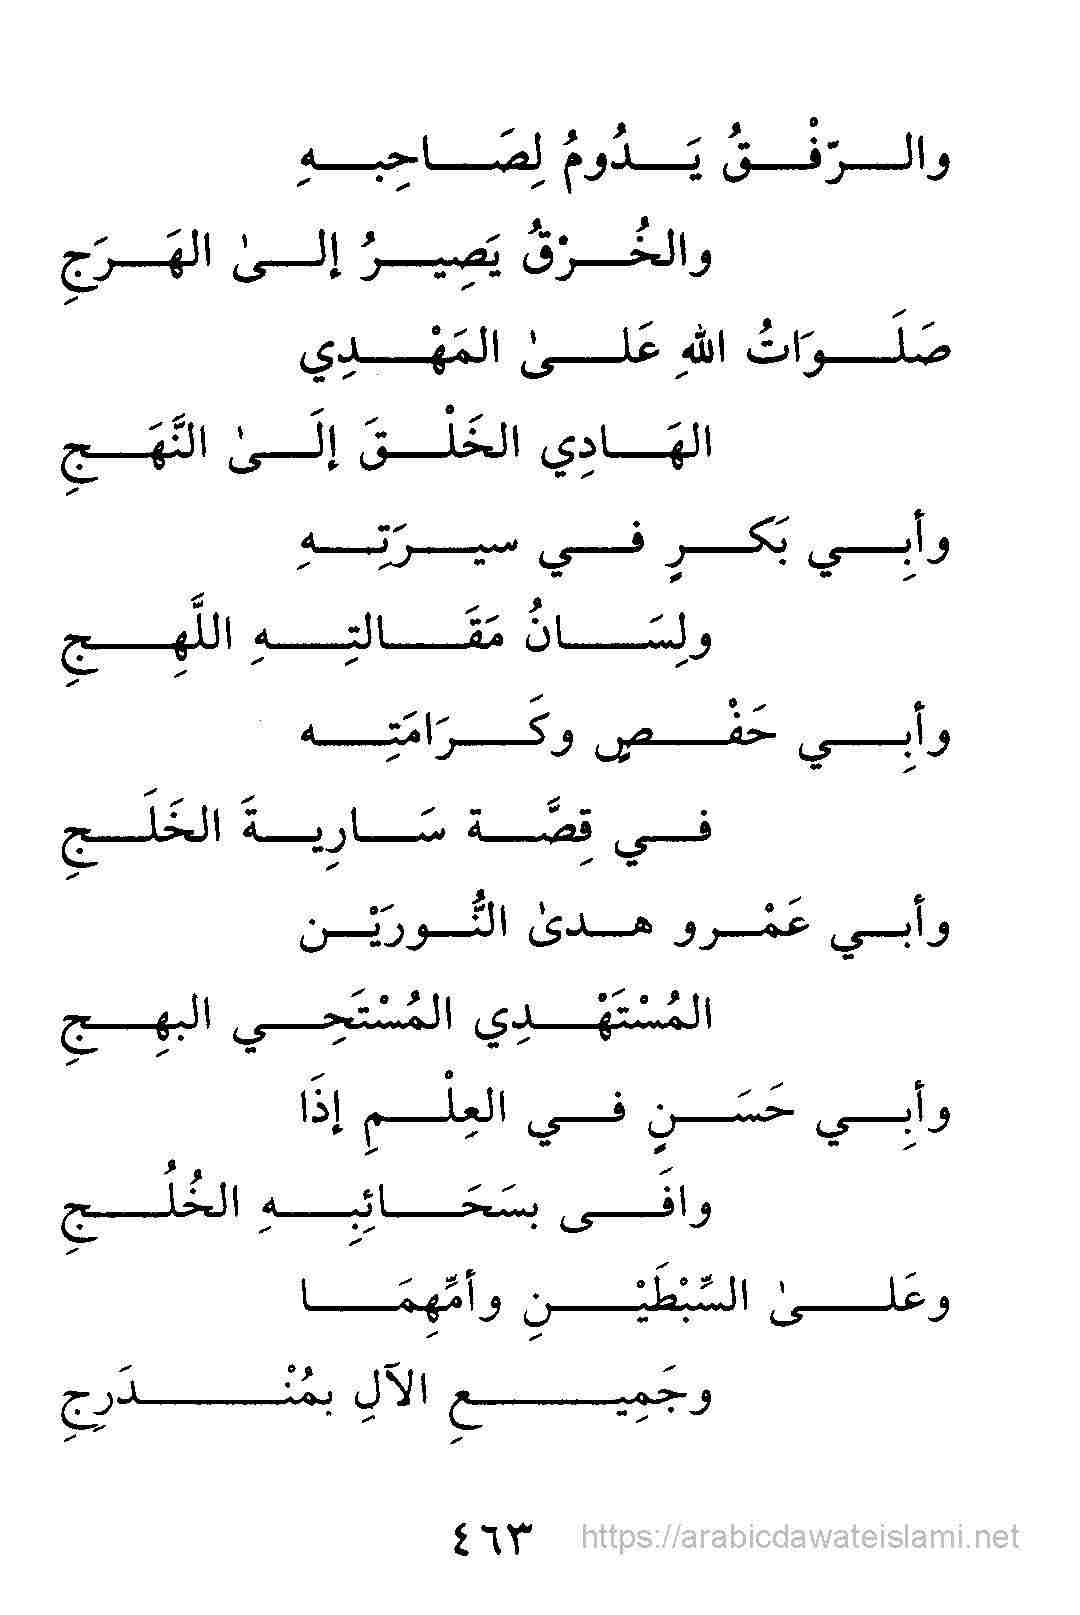 والرّفْقُ يَدُومُ لِصَاحِبهِ
والخُرْقُ يَصِيرُ إلىٰ الهَرَجِ
صَلَوَاتُ اللهِ عَلىٰ المَهْدِي
الهَادِي الخَلْقَ إلَىٰ النَّهَجِ
وأبِي بَكرٍ في سيرَتِهِ
ولِسَانُ مَقَالتِهِ اللَّهِجِ
وأبِي حَفْصٍ وكَرَامَتِه
في قِصَّة سَارِيةَ الخَلَجِ
وأبي عَمْرو هدىٰ النُّورَيْن
المُسْتَهْدِي المُسْتَحِي البهِجِ
وأبِي حَسَنٍ في العِلْمِ إذَا
وافَى بسَحَائِبِهِ الخُلُجِ
وعَلىٰ السِّبْطَيْنِ وأمِّهِمَا
وجَمِيعِ الآلِ بمُنْدَرِجِ
٤٦٣ https://arabicdawateislami.net